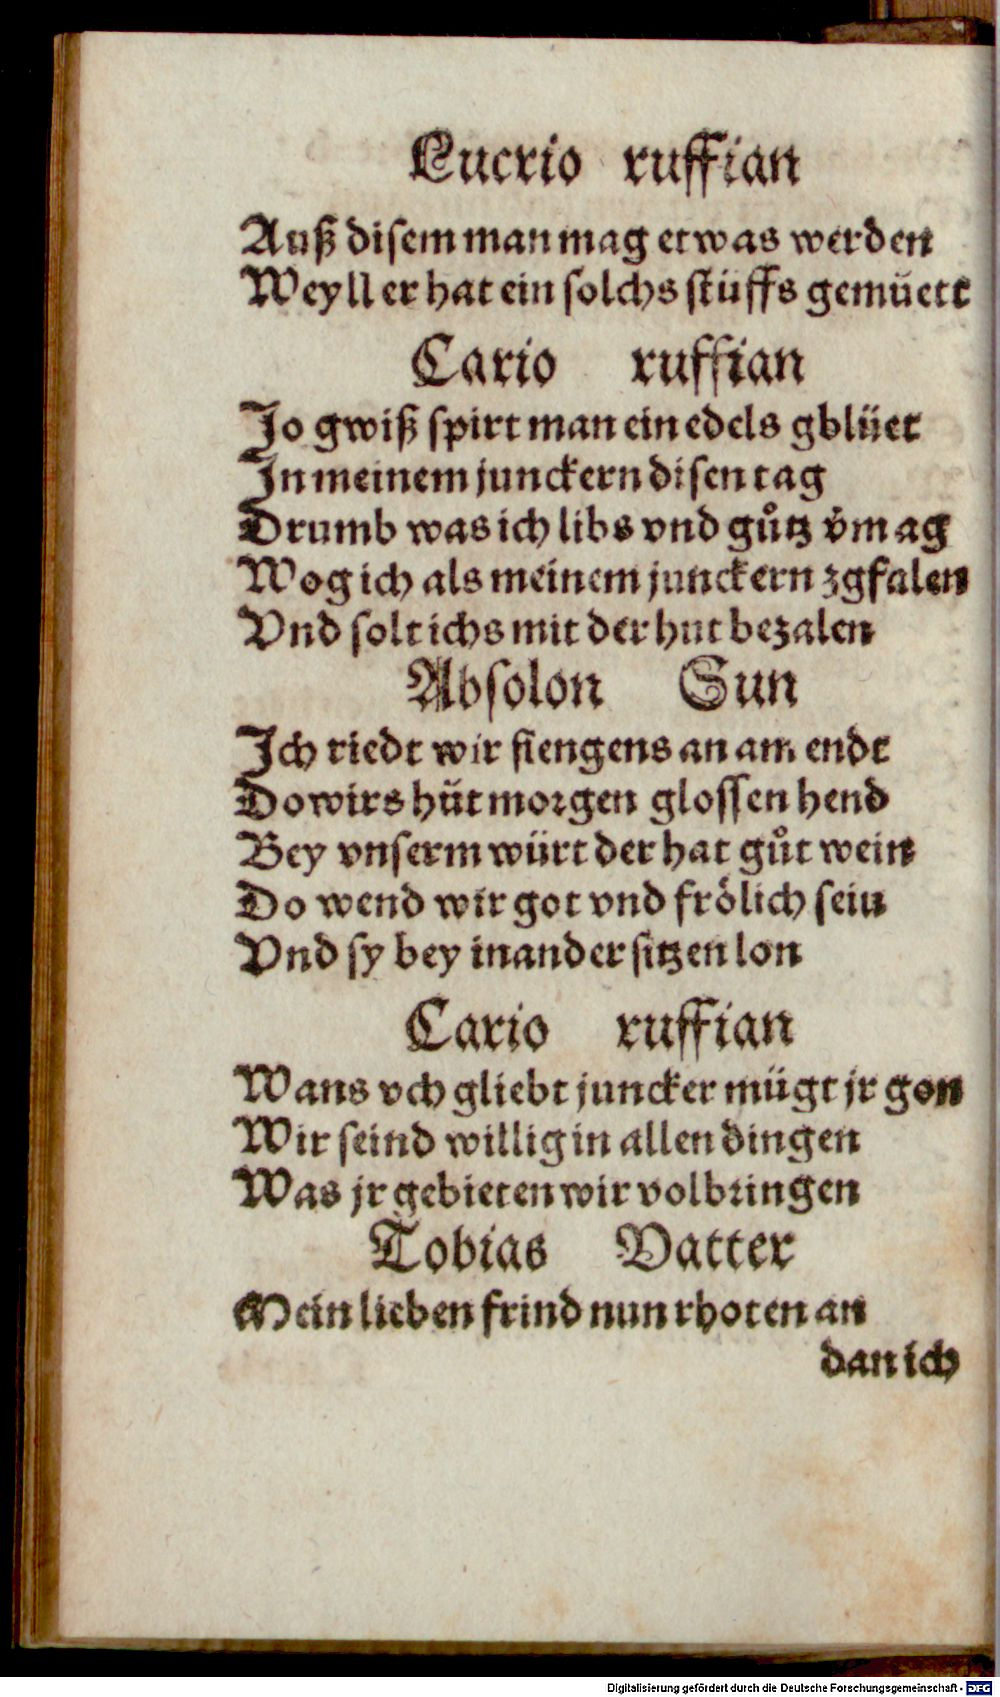 Lucrio ruffian
Auß disem man mag etwas werden
Weyll er hat ein solchs stüffs gemüett
Cario ruffian
Jo gwiß spirt man ein edels gblüet
In meinem junckern disen tag
Drumb was ich libs vnd gůtz v̈mag
Wog ich als meinem junckern zgfalen
Vnd solt ichs mit der hut bezalen
Absolon Sun
Ich riedt wir fiengens an am endt
Do wirs hüt morgen glossen hend
Bey vnserm würt der hat gůt wein
Do wend wir got vnd frölich sein
Vnd sy bey inander sitzen lon
Cario ruffian
Wans vch gliebt juncker mügt jr gon
Wir seind willig in allen dingen
Was jr gebieten wir volbringen
Tobias Vatter
Mein lieben frind nun rhoten an
dan ich
Digitalisierung gefördert durch die Deutsche Forschungsgemeinschaft - DFG